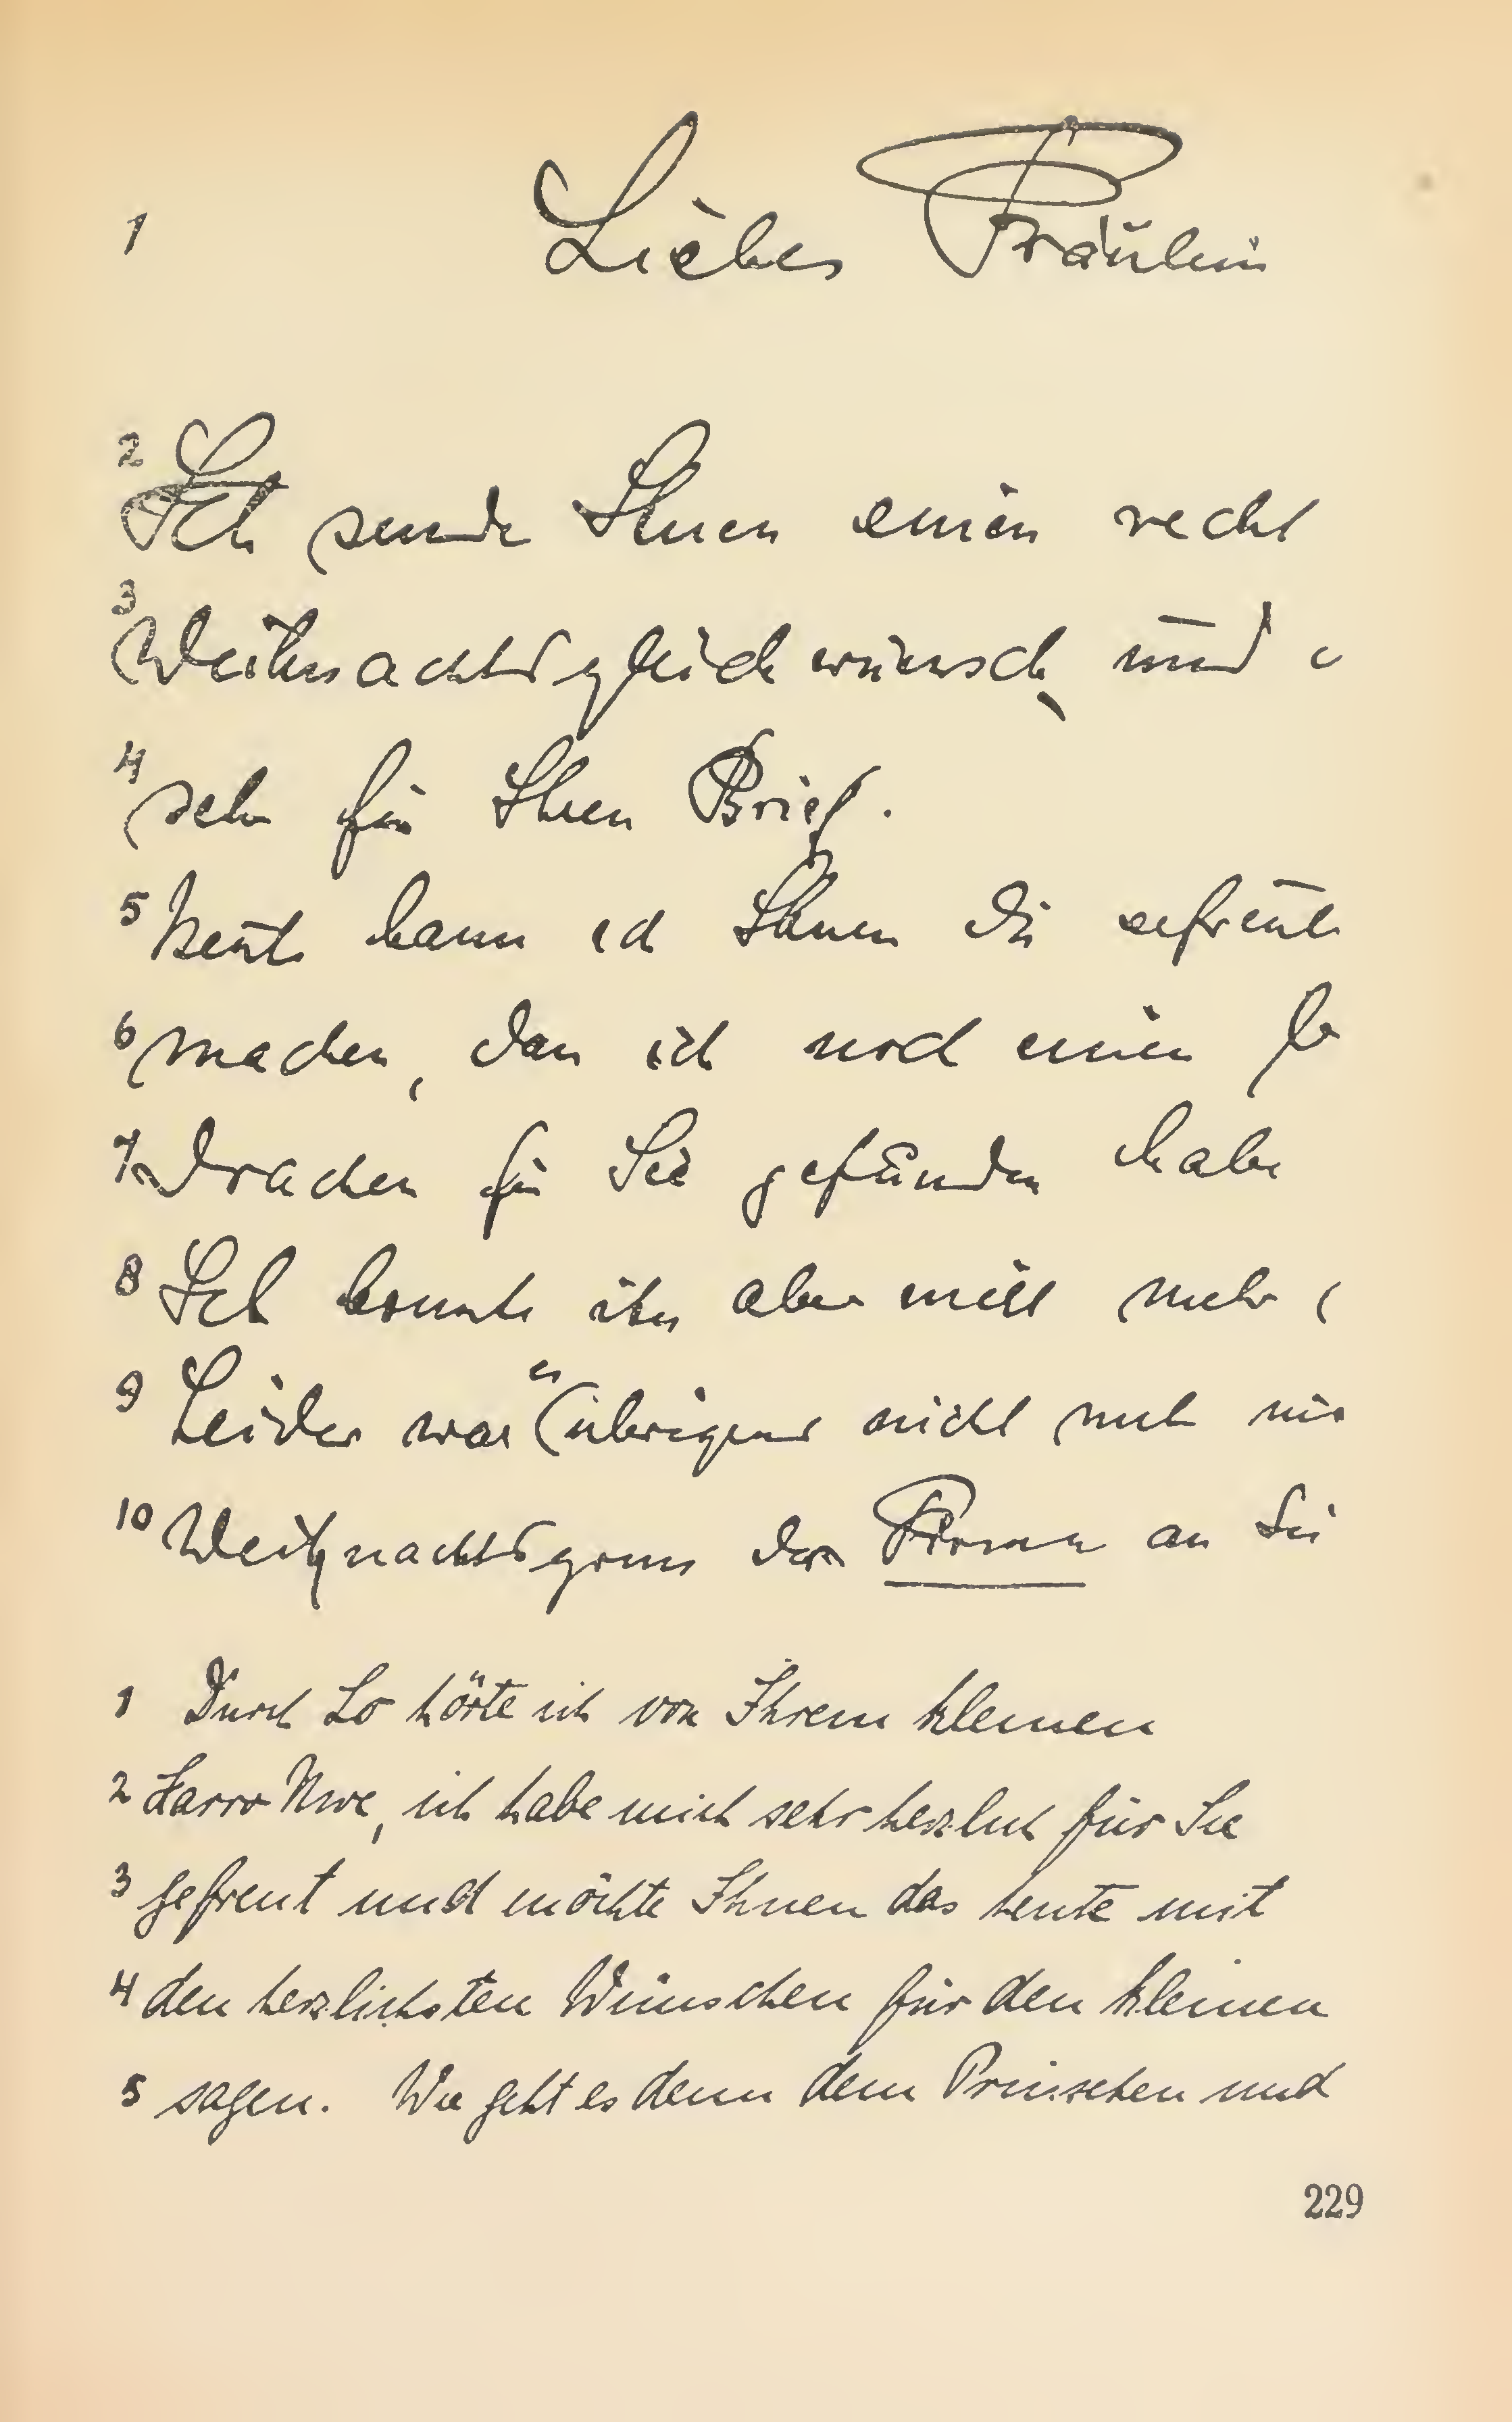 1 Liebes Fräulein
2 Ich sende Ihnen einen recht
3 Weihnachtsglückwunsch und
4 sehr für Ihren Brief.
5 Heute kann ich Ihnen die erfreul
6 machen, dass ich noch einen
7 Drachen für Sie gefunden habe
8 Ich konnte ihn aber nicht mehr
9 Leider war es übrigens nicht mehr
10 Weihnachtsgruss der Firma an Sie
1 Durch Lo hörte ich von Ihrem kleinen
2 ich habe mich sehr herzlich für Sie
3 gefreut und möchte Ihnen das heute mit
4 den herzlichsten Wünschen für den kleinen
5 sagen. Wie geht es denn dem Prinzchen und
229